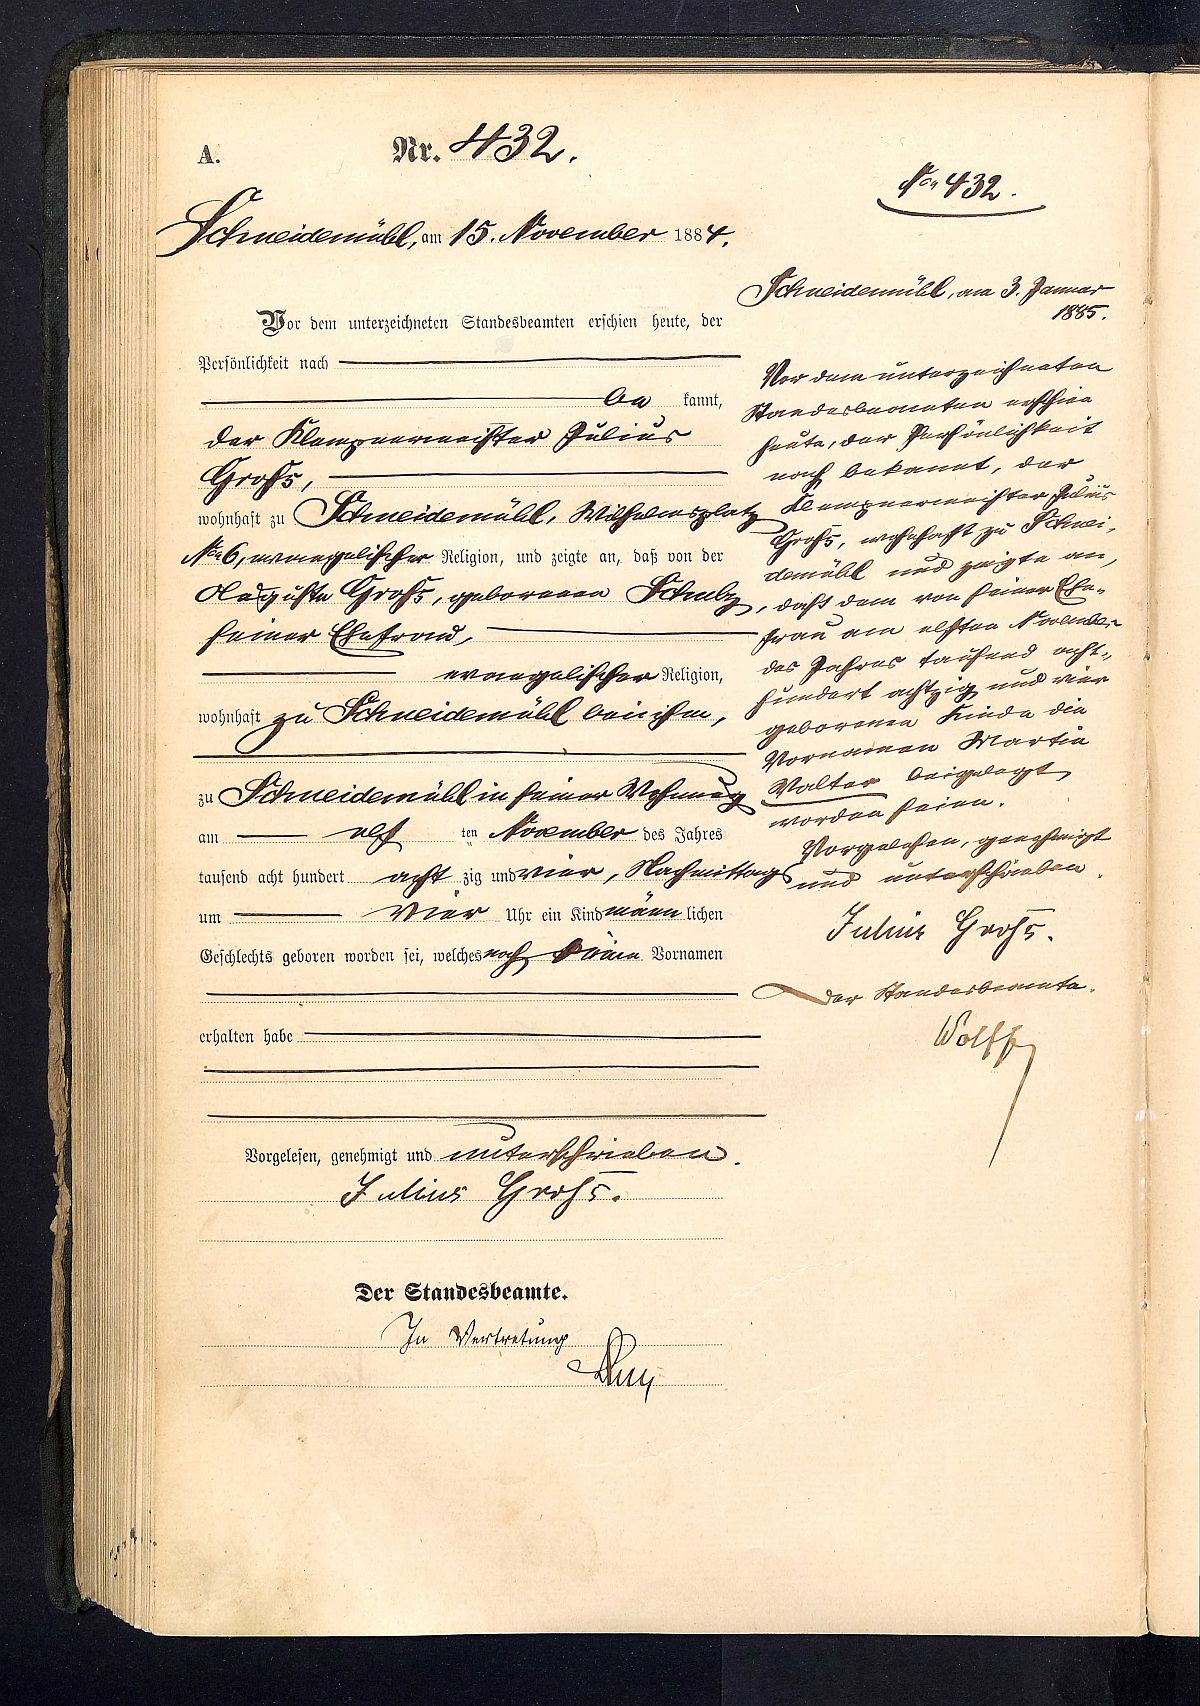 A.
Nr. 432.
Schneidemühl, am 15. November 1884.
Vor dem unterzeichneten Standesbeamten erschien heute, der
Persönlichkeit nach
be kannt,
der Klempnermeister Julius
Grohs,
wohnhaft zu Schneidemühl, Wilhelmsplatz
No 6, evangelischer Religion, und zeigte an, daß von der
Auguste Grohs, geborenen Schulz,
seiner Ehefrau,
evangelischer Religion,
wohnhaft zu Schneidemühl bei ihm,
zu Schneidemühl in seiner Wohnung
am elf ten November des Jahres
tausend acht hundert acht zig und vier, Nachmittags
um vier Uhr ein Kind männ lichen
Geschlechts geboren worden sei, welches noch keine Vornamen
erhalten habe
Vorgelesen, genehmigt und unterschrieben.
Julius Grohs.
Der Standesbeamte.
In Vertretung
No 432.
Schneidemühl, am 3. Januar
1885.
Vor dem unterzeichneten
Standesbeamten erschien
heute, der Persönlichkeit
nach bekannt, der
Klempnermeister Julius
Grohs, wohnhaft zu Schnei-
demühl und zeigte an,
daß dem von seiner Ehe-
frau am elften November
des Jahres tausend acht-
hundert achtzig und vier
geborenen Kinde die
Vornamen Martin
Walter beigelegt
worden seien.
Vorgelesen, genehmigt
und unterschrieben.
Julius Grohs.
Der Standesbeamte.
Wolff